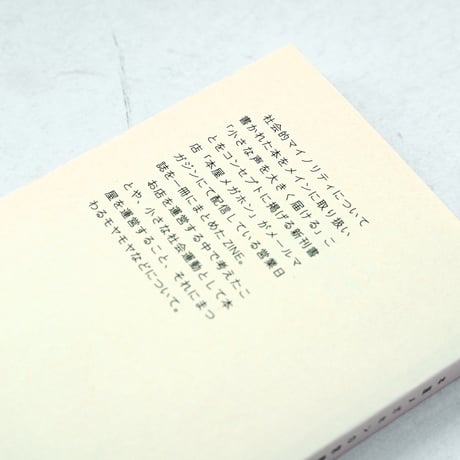 社会的マイノリティについて
書かれた本をメインに取り扱い
「小さな声を大きく届ける」こ
とをコンセプトに掲げる新刊書
店「本屋メガホン」がメールマ
ガジンにて配信している営業日
誌を一冊にまとめたZINE。
お店を運営する中で考えたこ
とや、小さな社会運動として本
屋を運営すること、それにまつ
わるモヤモヤなどについて。